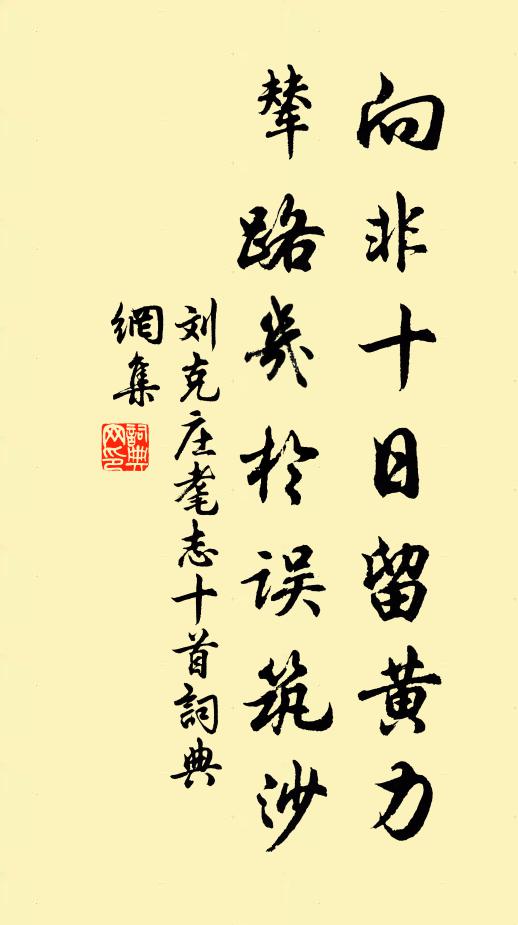 向非十日留黄力
辇路几於误筑沙
刘克庄耄志十首詞典
網集
詞典網印